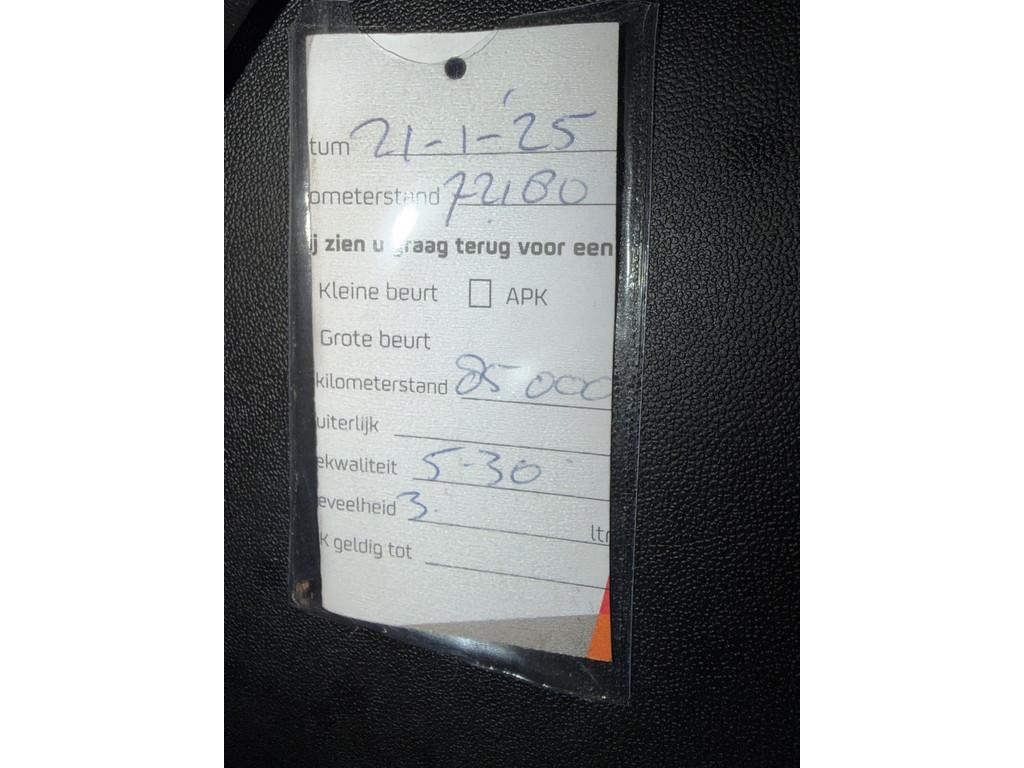 tum 21-1-'25
ometerstand 72180
ij zien u graag terug voor een
Kleine beurt □ APK
Grote beurt
kilometerstand 85 000
uiterlijk
ekwaliteit 5-30
eveelheid 3. ltr
K geldig tot